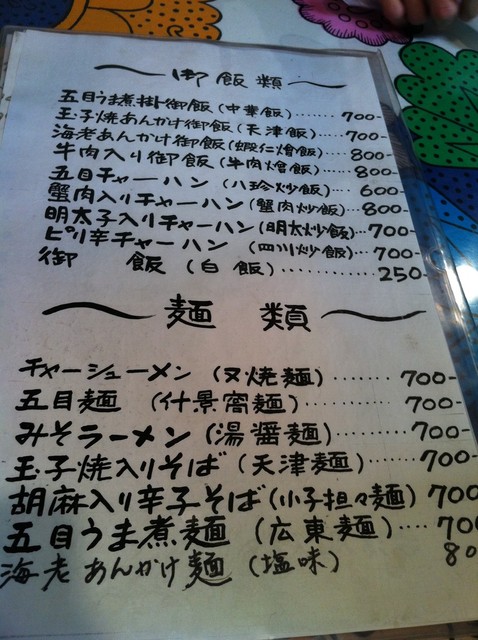 御飯類
五目うま煮掛御飯(中華飯)……700-
玉子焼あんかけ御飯(天津飯)…700-
海老あんかけ御飯(蝦仁燴飯)…800-
牛肉入り御飯(牛肉燴飯)……800-
五目チャーハン(八珍炒飯)……600-
蟹肉入りチャーハン(蟹肉炒飯)…800-
明太子入りチャーハン(明太炒飯)…700-
ピリ辛チャーハン(四川炒飯)…700-
御 飯(白飯)…………250-
麺 類
チャーシューメン(叉焼麺)……700-
五目麺(什景窩麺)…………700-
みそラーメン(湯醤麺)………700-
玉子焼入りそば(天津麺)……700-
胡麻入り辛子そば(小子担々麺)700
五目うま煮麺(広東麺)…700
海老あんかけ麺(塩味) 80